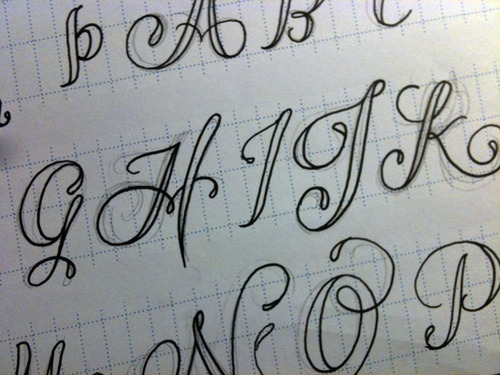 þ A B C
G H I J K
M N O P